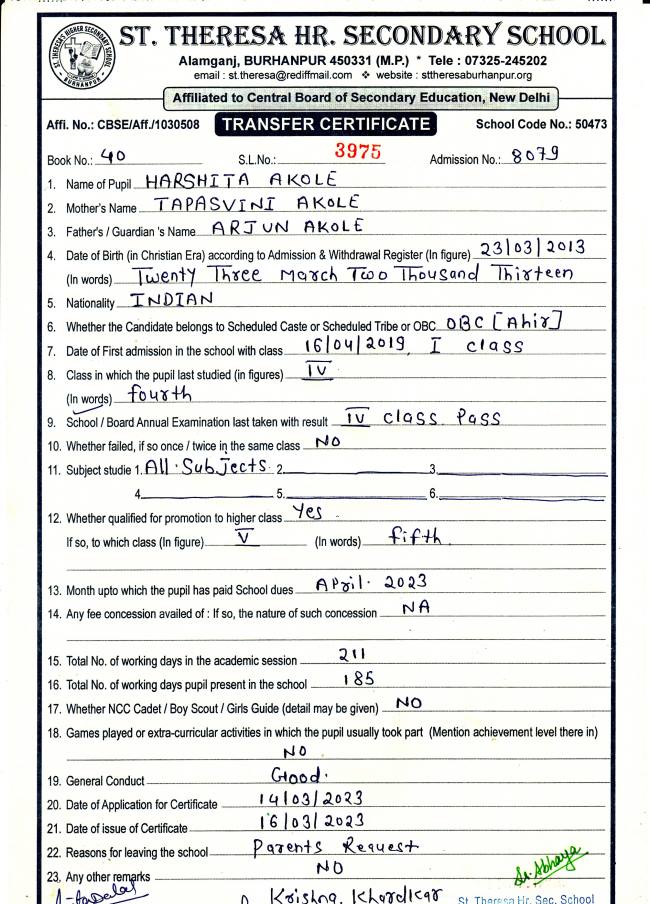 ST. THERESA'S HIGHER SECONDARY SCHOOL
BURHANPUR
ST. THERESA HR. SECONDARY SCHOOL
Alamganj, BURHANPUR 450331 (M.P.) * Tele : 07325-245202
email : st.theresa@rediffmail.com ❖ website : sttheresaburhanpur.org
Affiliated to Central Board of Secondary Education, New Delhi
Affi. No.: CBSE/Aff./1030508 TRANSFER CERTIFICATE School Code No.: 50473
Book No.: 40 S.L.No.: 3975 Admission No.: 8079
1. Name of Pupil HARSHITA AKOLE
2. Mother's Name TAPASVINI AKOLE
3. Father's / Guardian 's Name ARJUN AKOLE
4. Date of Birth (in Christian Era) according to Admission & Withdrawal Register (In figure) 23/03/2013
(In words) Twenty Three March Two Thousand Thirteen
5. Nationality INDIAN
6. Whether the Candidate belongs to Scheduled Caste or Scheduled Tribe or OBC OBC [Ahir]
7. Date of First admission in the school with class 16/04/2019, I class
8. Class in which the pupil last studied (in figures) IV
(In words) fourth
9. School / Board Annual Examination last taken with result IV class Pass
10. Whether failed, if so once / twice in the same class NO
11. Subject studie 1. All Subjects 2. 3.
4. 5. 6.
12. Whether qualified for promotion to higher class Yes
If so, to which class (In figure) V (In words) fifth
13. Month upto which the pupil has paid School dues April. 2023
14. Any fee concession availed of : If so, the nature of such concession NA
15. Total No. of working days in the academic session 211
16. Total No. of working days pupil present in the school 185
17. Whether NCC Cadet / Boy Scout / Girls Guide (detail may be given) NO
18. Games played or extra-curricular activities in which the pupil usually took part (Mention achievement level there in)
NO
19. General Conduct Good.
20. Date of Application for Certificate 14/03/2023
21. Date of issue of Certificate 16/03/2023
22. Reasons for leaving the school Parents Request
23. Any other remarks NO
Sr. Abhaya
Krishna. Khardikar St. Theresa Hr. Sec. School